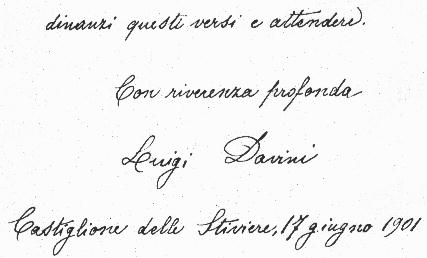 dinanzi questi versi e attendere.
Con riverenza profonda
Luigi Davini
Castiglione delle Stiviere, 17 giugno 1901